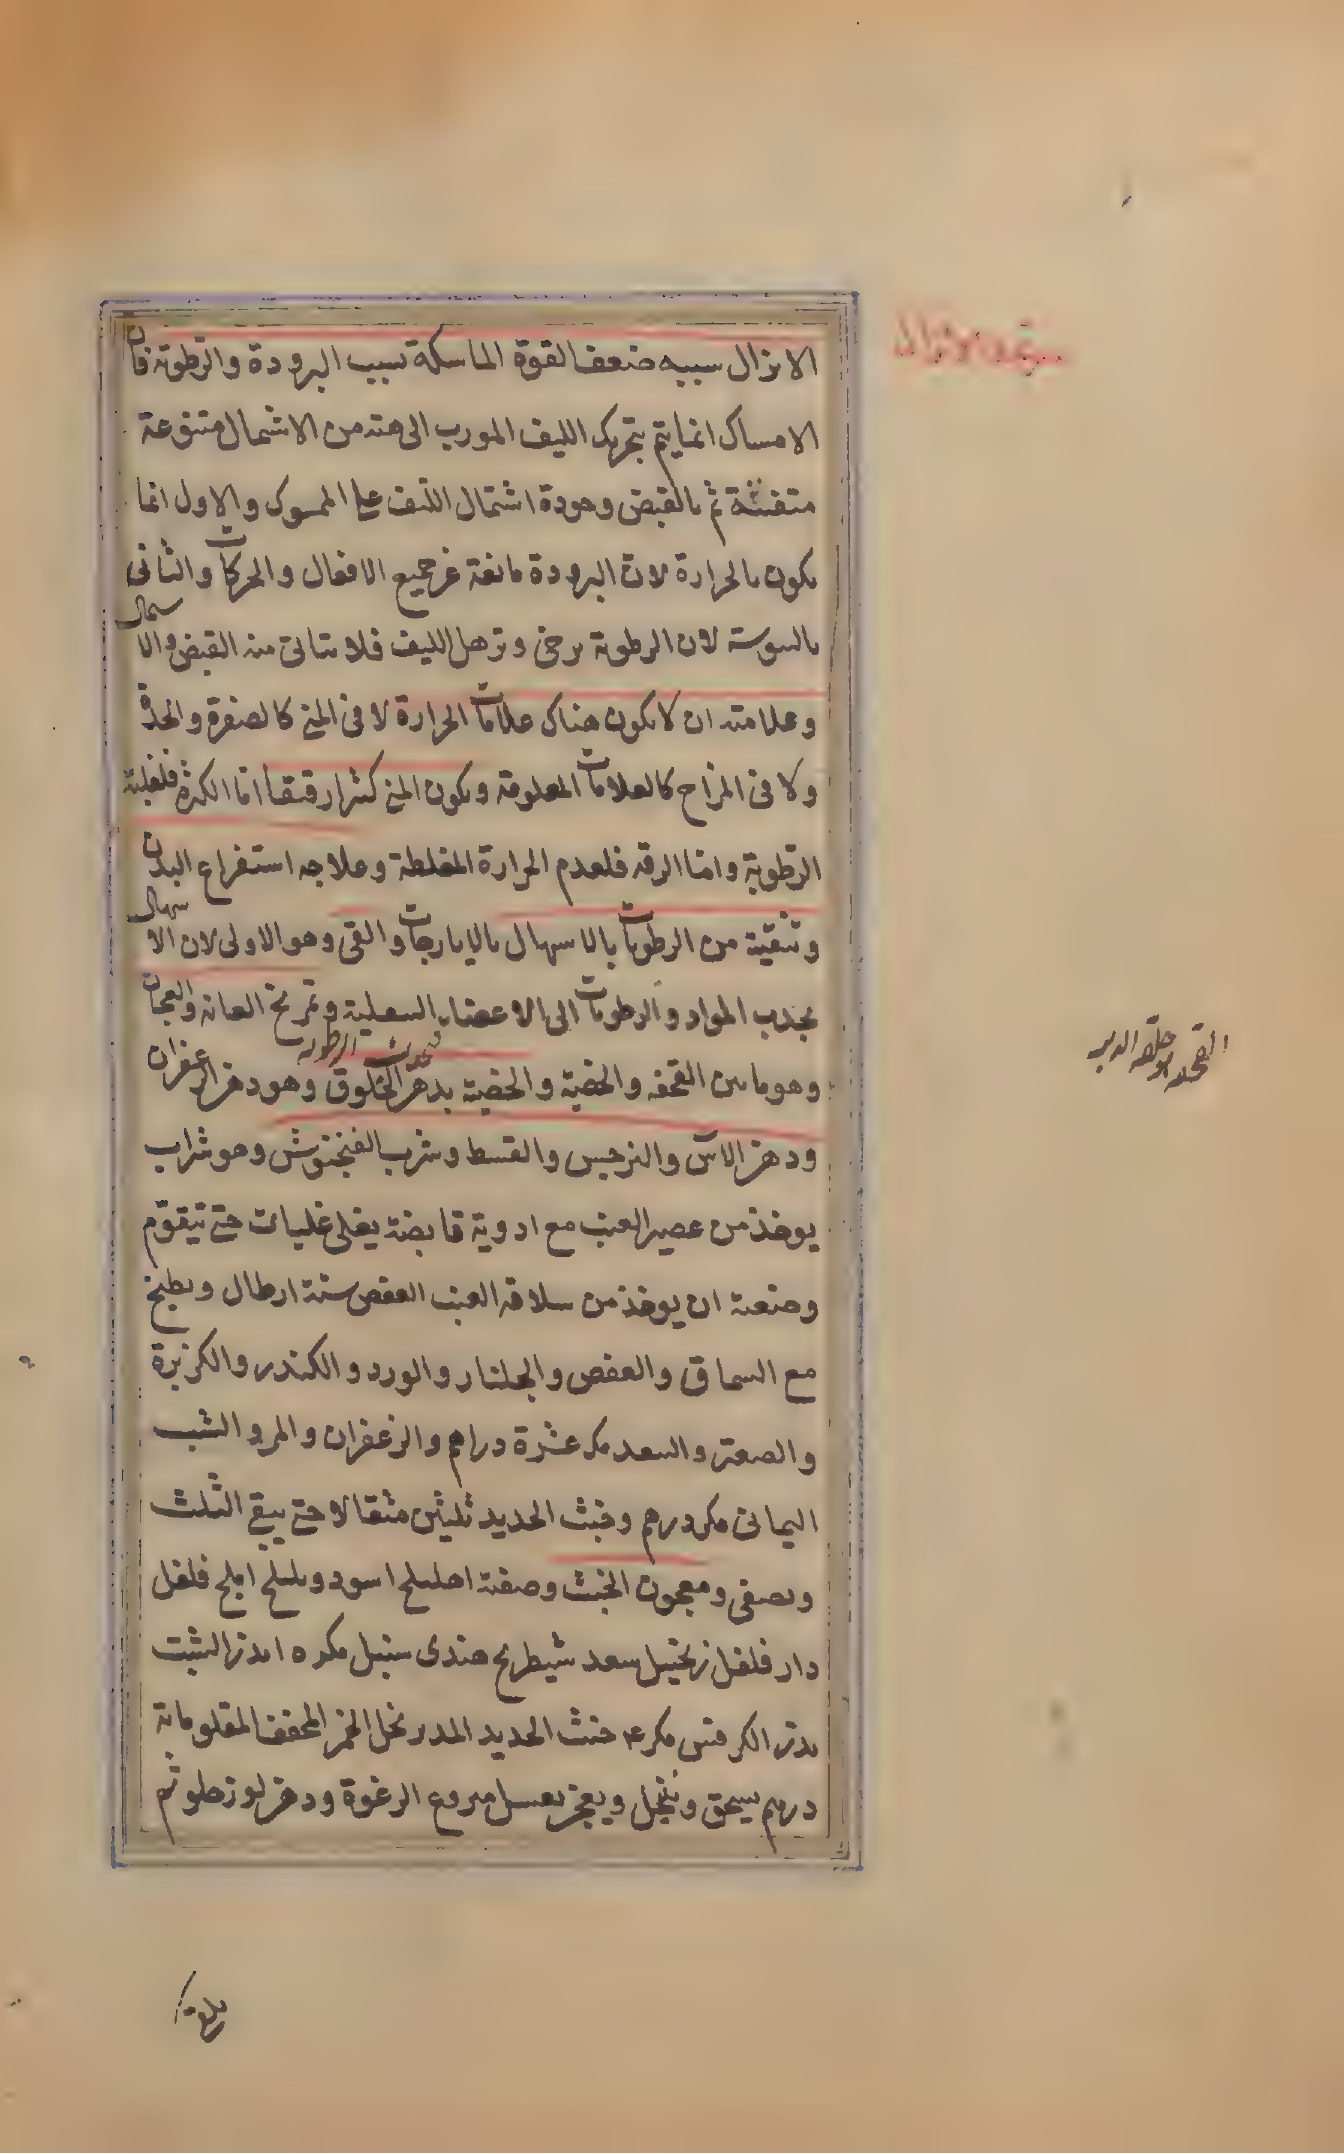 سرعة الانزال
الانزال سببه ضعف القوة الماسكة بسبب البرودة والرطوبة فان
الامساك انما يتم بتحريك الليف المورب الى هيئة من الاشتمال متنوعة
متفننة ثم بالقبض وجودة اشتمال الليف على الممسوك والاول انما
يكون بالحرارة لان البرودة مانعة عن جميع الافعال والحركات والثانى
باليبوسة لان الرطوبة ترخى وترهل الليف فلا يتاتى منه القبض والاشتمال
وعلامته ان لا يكون هناك علامات الحرارة لا فى المنى كالصفرة والحدة
ولا فى المزاج كالعلامات المعلومة ويكون المنى كثيرا رقيقا اما الكثرة فلغلبة
الرطوبة واما الرقة فلعدم الحرارة المغلظة وعلاجه استفراغ البدن
وتنقيته من الرطوبات بالاسهال بالايارجات والقى وهو الاولى لان الاسهال
يجذب المواد والرطوبات الى الاعضاء السفلية وتمريخ العانة والعجان
وهو ما بين القحقه والخصية والخصية بدهن الخلوق وهو دهن الزعفران
ودهن الآس والنرجس والقسط وشرب الفنجنوش وهو شراب
يوخذ من عصير العنب مع ادوية قابضة يغلى غليات حتى يتقوم
وصنعته ان يوخذ من سلاقه العنب العفص ستة ارطال ويطبخ
مع السماق والعفص والجلنار والورد والكندر والكزبرة
والصعتر والسعد مكد عشرة دراهم والزعفران والمر والشب
اليمانى مكد درهم وخبث الحديد ثلثين مثقالا حتى يبقى الثلث
ويصفى ومعجون الخبث وصفته اهليلج اسود وبليلج املج فلفل
دار فلفل زنجبيل سعد شيطرج هندى سنبل مكد ه ا بذر الشبت
بذر الكرفس مكد خبث الحديد المدبر بخل الخمر المجفف المقلو ماية
درهم يسحق وينخل ويعجن بعسل منزوع الرغوة ودهن لوز حلو ثم
القحقه حلقة الدبر